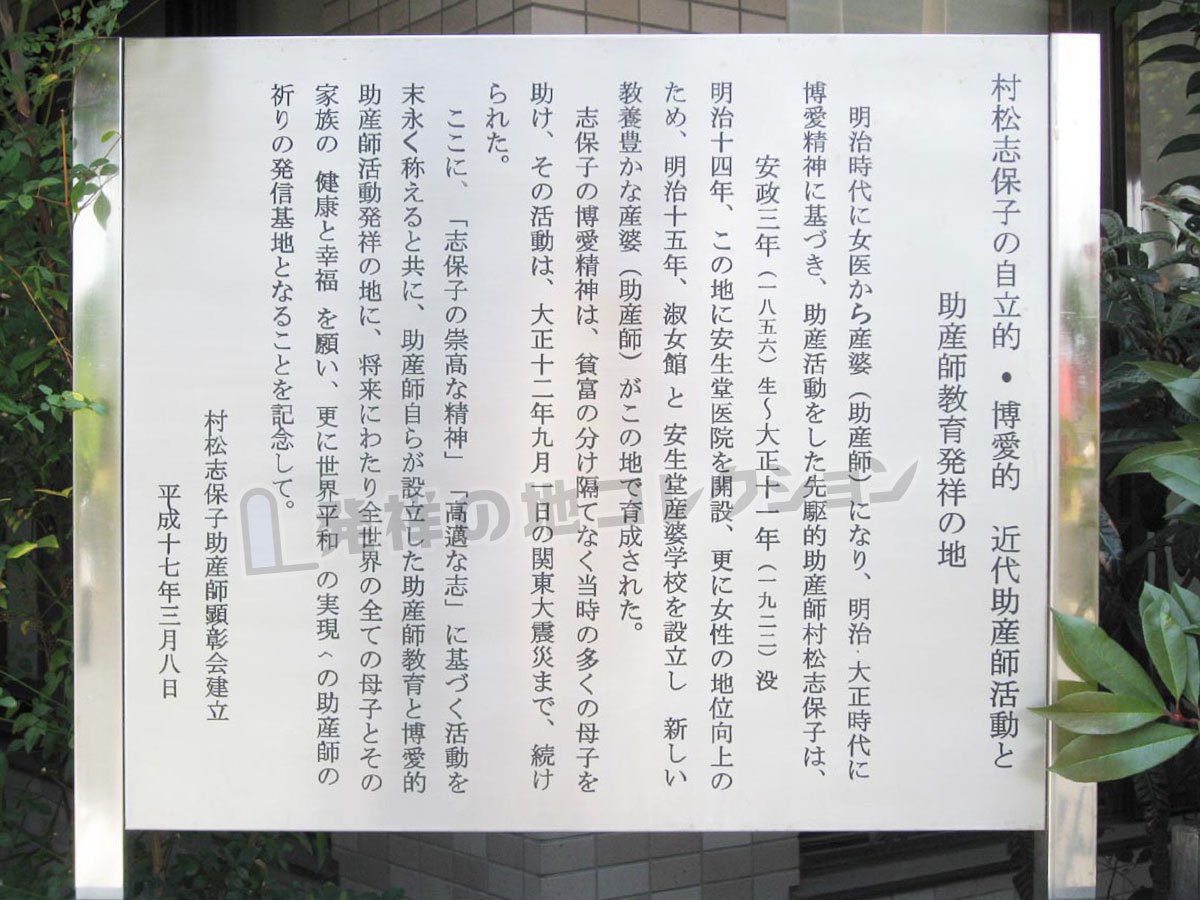 村松志保子の自立的・博愛的 近代助産師活動と
助産師教育発祥の地
明治時代に女医から産婆（助産師）になり、明治・大正時代に
博愛精神に基づき、助産活動をした先駆的助産師村松志保子は、
安政三年（一八五六）生～大正十一年（一九二二）没
明治十四年、この地に安生堂医院を開設、更に女性の地位向上の
ため、明治十五年、淑女館と安生堂産婆学校を設立し 新しい
教養豊かな産婆（助産師）がこの地で育成された。
志保子の博愛精神は、貧富の分け隔てなく当時の多くの母子を
助け、その活動は、大正十二年九月一日の関東大震災まで、続け
られた。
ここに、「志保子の崇高な精神」「高邁な志」に基づく活動を
末永く称えると共に、助産師自らが設立した助産師教育と博愛的
助産師活動発祥の地に、将来にわたり全世界の全ての母子とその
家族の 健康と幸福 を願い、更に世界平和 の実現への助産師の
祈りの発信基地となることを記念して。
村松志保子助産師顕彰会建立
平成十七年三月八日
発祥の地コレクション